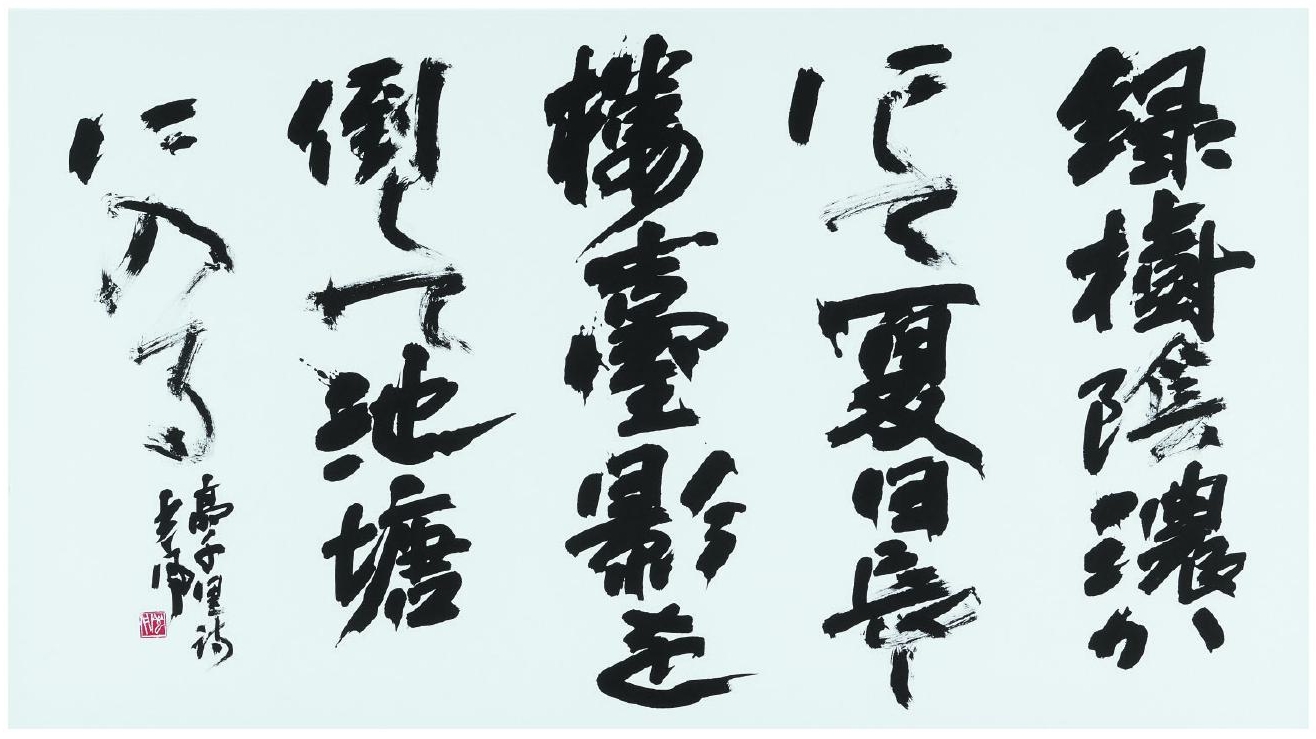 緑樹陰濃か
にして夏日長し
樓臺影を
倒して池塘
に入る
高千里詩